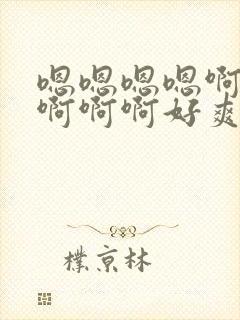 嗯嗯嗯嗯啊
啊啊啊好爽
樸京林